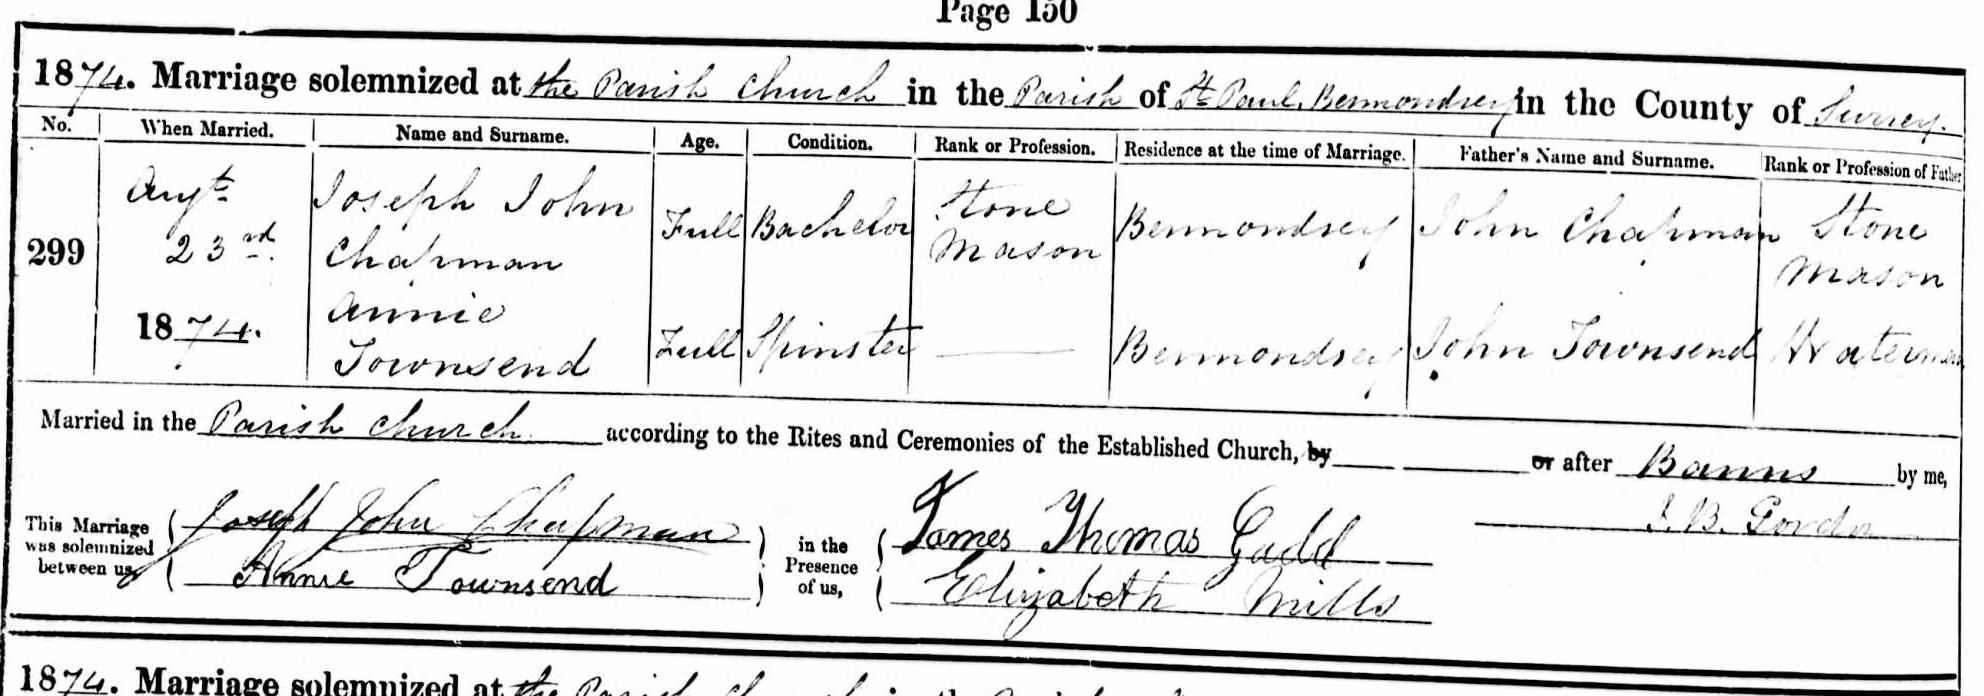 Page 150
1874. Marriage solemnized at the Parish Church in the Parish of St Paul, Bermondsey in the County of Surrey.
No. When Married. Name and Surname. Age. Condition. Rank or Profession. Residence at the time of Marriage. Father's Name and Surname. Rank or Profession of Father
299 Augt 23rd 1874.
Joseph John Chapman Full Bachelor Stone Mason Bermondsey John Chapman Stone Mason
Annie Townsend Full Spinster — Bermondsey John Townsend Waterman
Married in the Parish Church according to the Rites and Ceremonies of the Established Church, by or after Banns by me,
J. B. Gordon
This Marriage was solemnized between us, Joseph John Chapman
Annie Townsend
in the Presence of us, James Thomas Gadd
Elizabeth Mills
1874. Marriage solemnized at the Parish